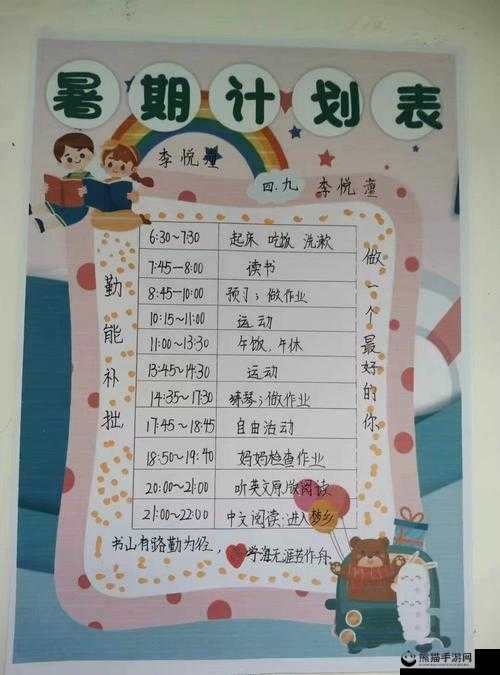 暑期计划表
李悦潼
四.九 李悦潼
勤能补拙
6:30~7:30 起床 吃饭 洗漱
7:45—8:00 读书
8:45—10:00 预习；做作业
10:15~11:00 运动
11:00~13:30 午饭,午休
13:45~14:30 运动
14:35~17:30 练琴；做作业
17:45~18:45 自由活动
18:50~19:40 妈妈检查作业
20:00~21:00 听英文原版阅读
21:00~22:00 中文阅读;进入梦乡
做一个最好的你
书山有路勤为径，学海无涯苦作舟
熊猫手游网